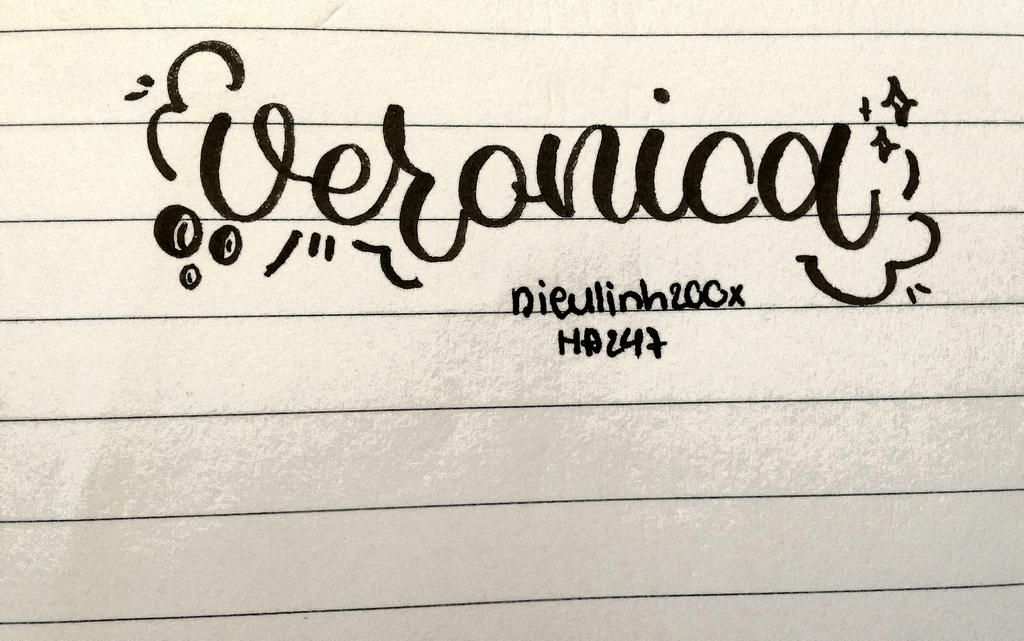 Veronica
Dieulinh200x
HA247